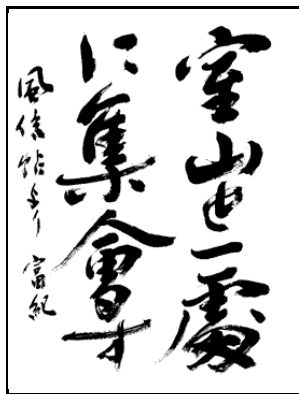 室山と一處
に集會す
風信帖より 富紀